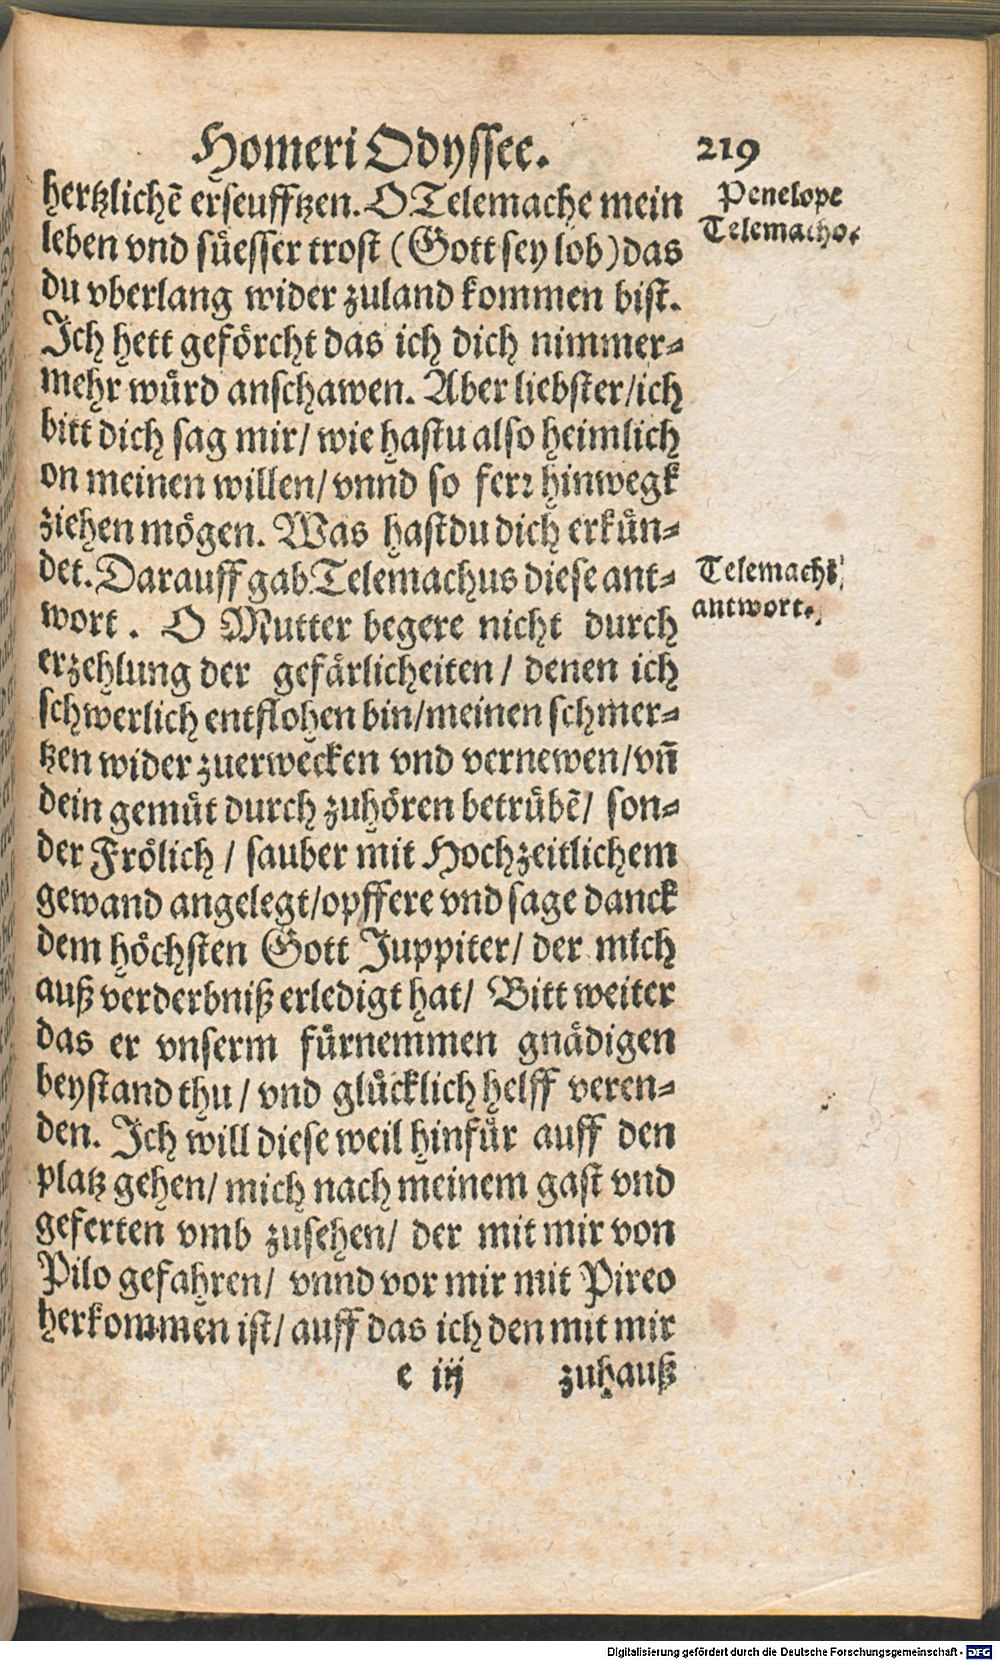 Homeri Odyssee. 219
hertzlichẽ erseufftzen. O Telemache mein
Penelope
leben vnd süesser trost (Gott sey lob) das
Telemacho.
du vberlang wider zuland kommen bist.
Ich hett geförcht das ich dich nimmer-
mehr würd anschawen. Aber liebster/ ich
bitt dich sag mir/ wie hastu also heimlich
on meinen willen/ vnnd so ferr hinwegk
ziehen mögen. Was hastdu dich erkün-
det. Darauff gab Telemachus diese ant-
Telemachi
wort. O Mutter begere nicht durch
antwort.
erzehlung der gefärlicheiten/ denen ich
schwerlich entflohen bin/ meinen schmer-
tzen wider zuerwecken vnd vernewen/ vñ
dein gemüt durch zuhören betrübẽ/ son-
der Frölich/ sauber mit Hochzeitlichem
gewand angelegt/ opffere vnd sage danck
dem höchsten Gott Juppiter/ der mich
auß verderbniß erledigt hat/ Bitt weiter
das er vnserm fürnemmen gnädigen
beystand thu/ vnd glücklich helff veren-
den. Ich will diese weil hinfür auff den
platz gehen/ mich nach meinem gast vnd
geferten vmb zusehen/ der mit mir von
Pilo gefahren/ vnnd vor mir mit Pireo
herkommen ist/ auff das ich den mit mir
e iij zuhauß
Digitalisierung gefördert durch die Deutsche Forschungsgemeinschaft - DFG